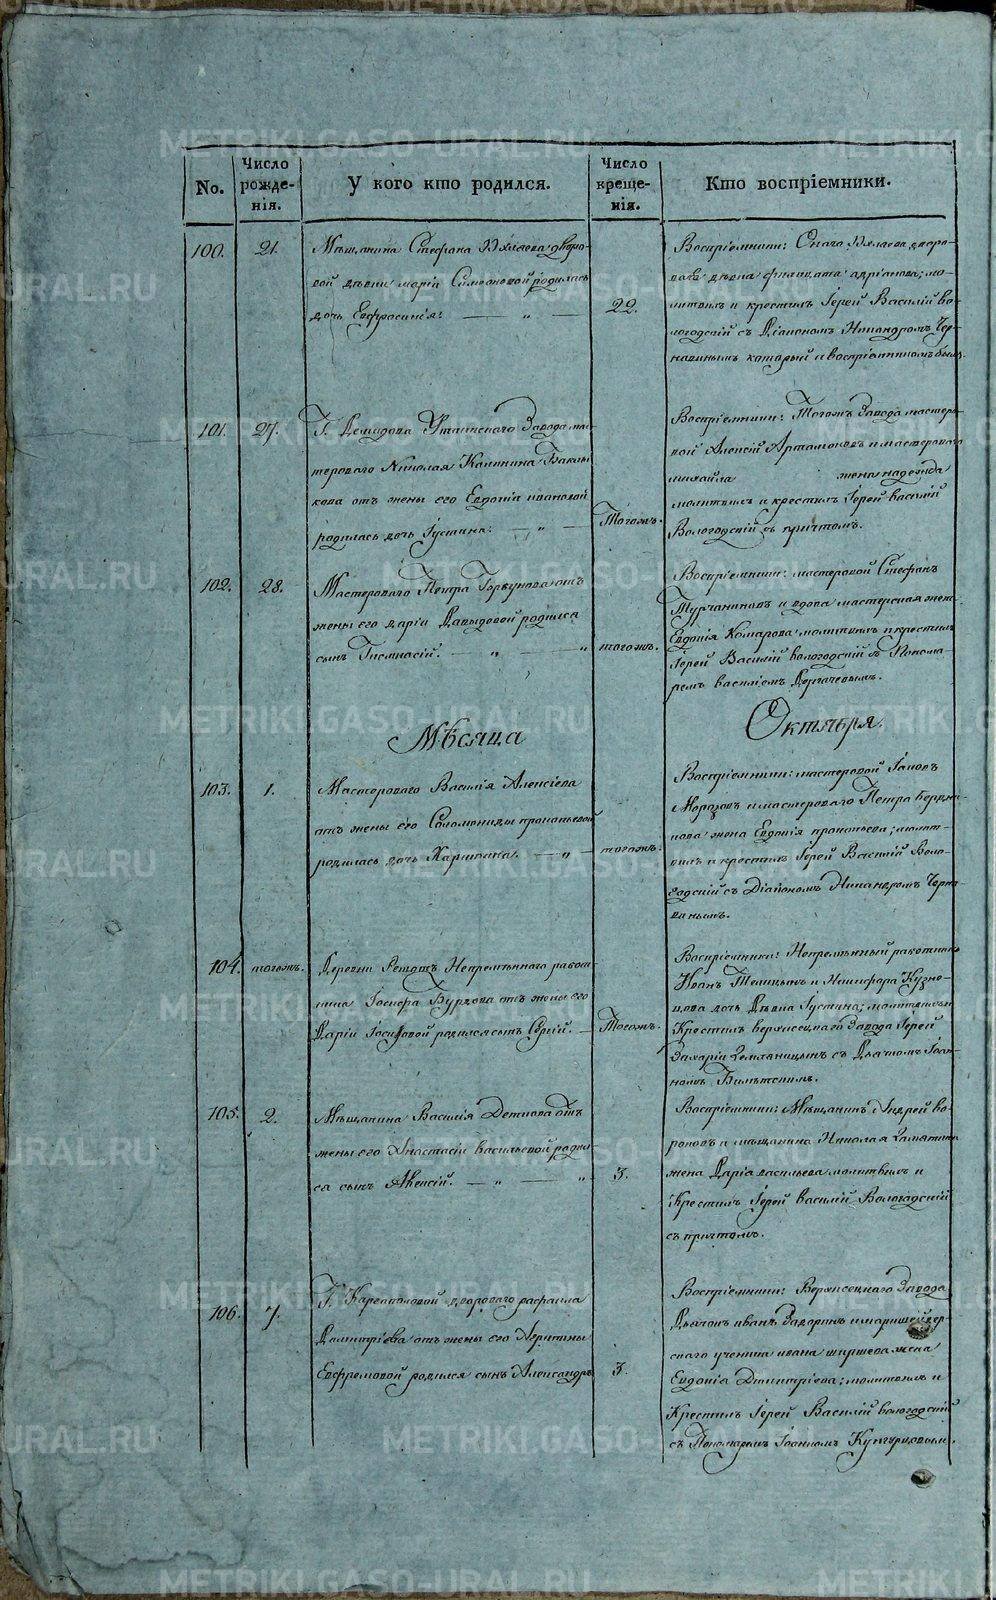 No.
Число рожде-нія.
У кого кто родился.
Число креще-нія.
Кто воспріемники.
100.
21.
Мѣщанина Стефана дворо-
вой дѣвки маріи Симеоновой родилась
дочь Евфросинія:
22.
Воспріемники: дворо-
вая дѣвка адріанова; мо-
литвилъ и крестилъ Іерей Василій во-
логодскій съ Діакономъ Никандромъ Чер-
навинымъ который и воспріемникомъ былъ.
101.
27.
Г. Демидова Уткинскаго Завода мас-
тероваго Николая Калинина
кова отъ жены его Евдокіи ивановой
родилась дочь Іустина:
Тогожъ.
Воспріемники: Тогожъ Завода мастеро-
вой Алексій Артамоновъ и мастероваго
михайла жена надежда
молитвилъ и крестилъ Іерей василій
Вологодскій съ причтомъ.
102.
28.
Мастероваго Петра Горбунова отъ
жены его даріи Давыдовой родился
сынъ
тогожъ.
Воспріемники: мастеровой Стефанъ
Турчаниновъ и вдова мастерская жена
Евдокія Комарова молитвилъ и крестилъ
Іерей Василій вологодскій съ Понома-
ремъ василіемъ
Мѣсяца
Октября.
103.
1.
Мастероваго Василія Алексіева
отъ жены его Соломониды прокопьевой
родилась дочь Харитина.
тогожъ.
Воспріемники: мастеровой Іаковъ
Морозовъ и мастероваго Петра
жена Евдокія прокопьева; молит-
вилъ и крестилъ Іерей Василій Воло-
годскій съ Діакономъ Никандромъ Черна-
винымъ.
104.
тогожъ.
Деревни Решетъ Непремѣннаго работ-
ника Іосифа Бурдова отъ жены его
Даріи Іосифовой родился сынъ Сергій.
Тогожъ.
Воспріемники: Непремѣнный работникъ
Иванъ Телицынъ и Никифора Кузне-
цова дочь Дѣвка Іустина; молитвилъ и
Крестилъ верхисецкаго Завода Іерей
Захарій Земляницынъ съ Дьячкомъ Іоан-
номъ
105.
2.
Мѣщанина Василія Деткова отъ
жены его Анастасіи васильевой родил-
ся сынъ Алексій.
3.
Воспріемники: Мѣщанинъ Андрей во-
роновъ и мѣщанина Николая Замятина
жена Дарія васильева молитвилъ и
Крестилъ Іерей василій Вологодскій
съ причтомъ.
106.
7.
Г. двороваго рафаила
Димитріева отъ жены его
Евфремовой родился сынъ Александръ
3.
Воспріемники: Верхисецкаго Завода
Дьячокъ иванъ
скаго ученика ивана ширшева жена
Евдокія Димитріева; молитвилъ и
Крестилъ Іерей Василій вологодскій
съ Пономаремъ Іоанномъ Кунгурцовымъ.
METRIKI.GASO-URAL.RU